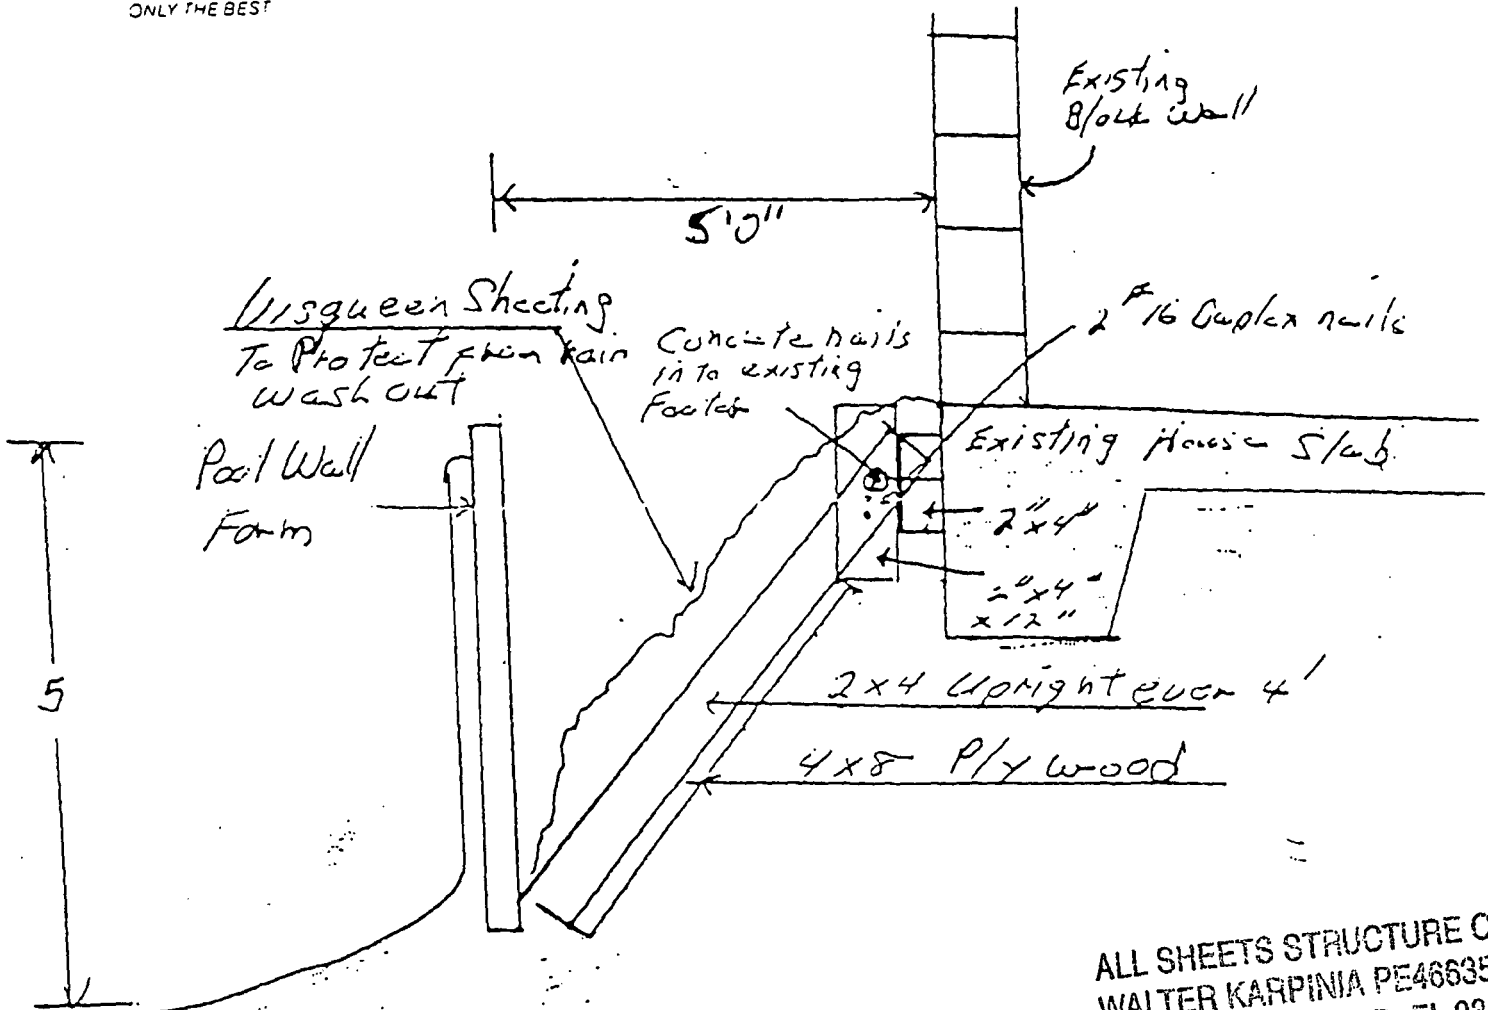 ONLY THE BEST
Existing
Block Wall
5'0"
Visqueen Sheeting
To Protect from rain
wash out
Concrete nails
in to existing
2 #16 Duplex nails
Pool Wall
Form
Existing House Slab
2"x4"
2"x4"
x12"
5
2x4 Upright ever 4'
4x8 Plywood
ALL SHEETS STRUCTURE
WALTER KARPINIA PE46635